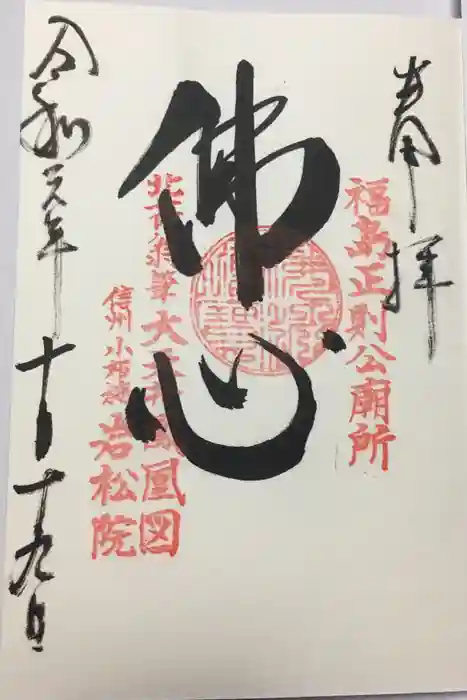 奉拝
福島正則公廟所
佛心
北斎翁筆 大天井鳳凰図
信州小布施 岩松院
令和元年十月十九日